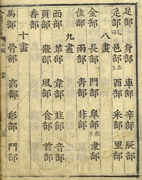 足部 身部 車部 辛部 辰部
辵部 邑部 酉部 釆部 里部
八畫
金部 長部 門部 阜部 隶部
隹部 雨部 靑部 非部
九畫
面部 革部 韋部 韭部 音部
頁部 風部 飛部 食部 首部
香部
十畫
馬部 骨部 高部 髟部 鬥部